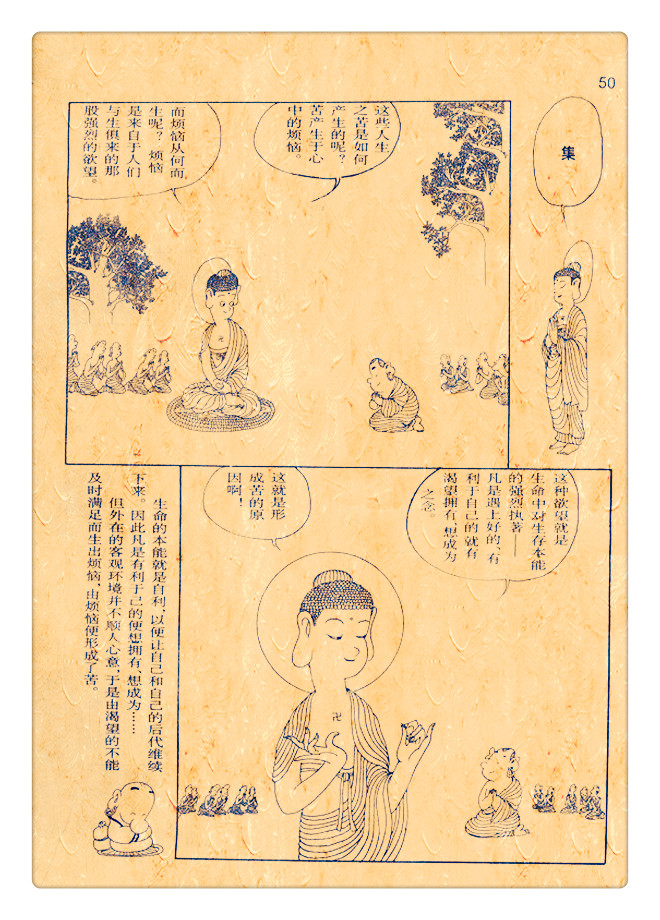 50
集
这些人生
之苦是如何
产生的呢？
苦产生于心
中的烦恼。
而烦恼从何而
生呢？烦恼
是来自于人们
与生俱来的那
股强烈的欲望。
这种欲望就是
生命中对生存本能
的强烈执著——
凡是遇上好的、有
利于自己的就有
渴望拥有、想成为
之念。
这就是形
成苦的原
因啊！
生命的本能就是自利，以便让自己和自己的后代维续
下来。因此凡是有利于己的便想拥有、想成为……
但外在的客观环境并不顺人心意，于是由渴望的不能
及时满足而生出烦恼，由烦恼便形成了苦。
卍